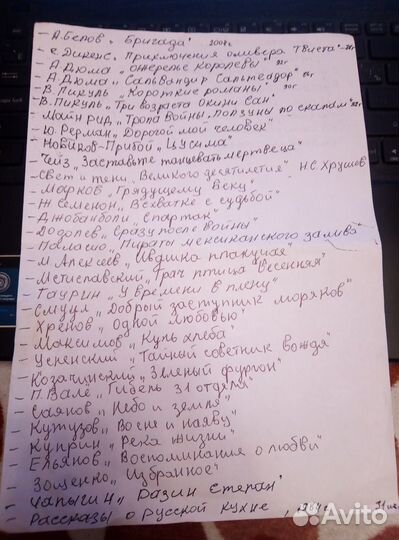 - А. Белов „Бригада" 2008г
- С. Дикенс. Приключения оливера Твиста"
- А Дюма „ожерелье королевы"
- А Дюма „Сальвандир Сальтеадор"
- В. Пикуль „Короткие романы" 90г
- В. Пикуль „Три возраста Окини Сан"
- Майн рид „Тропа войны, Ползуны по скалам"
- Ю. Герман „Дорогой мой человек"
- Новиков-Прибой „Цусима"
- Чейз „Заставьте танцевать мертвеца
- Свет и тени „Великого десятилетия" Н.С. Хрущев
- Марков „Грядущему Веку
- Ж Семенон „В схватке с судьбой"
- Джованьоли „Спартак"
- „Сразу после войны"
- Паласио „Пираты мексиканского залива"
- М. Алексеев „Ивушка плакучая"
- Мстиславский „Грач птица весенняя"
- Таурин „У времени в плену"
- Смуул „Добрый заступник моряков"
- Хренов „Одной любовью"
- Максимов „Куль хлеба"
- Успенский „Тайный советник вождя"
- Козачинский „Зеленый фургон"
- П. Вале „Гибель 31 отдела"
- Саянов „Небо и земля"
- Кутузов „Во сне и наяву"
- Куприн „Река жизни"
- Ельянов „Воспоминания о любви"
- Зощенко „Избранное"
- Чапыгин „Разин Степан"
- Рассказы о русской кухне,
Avito